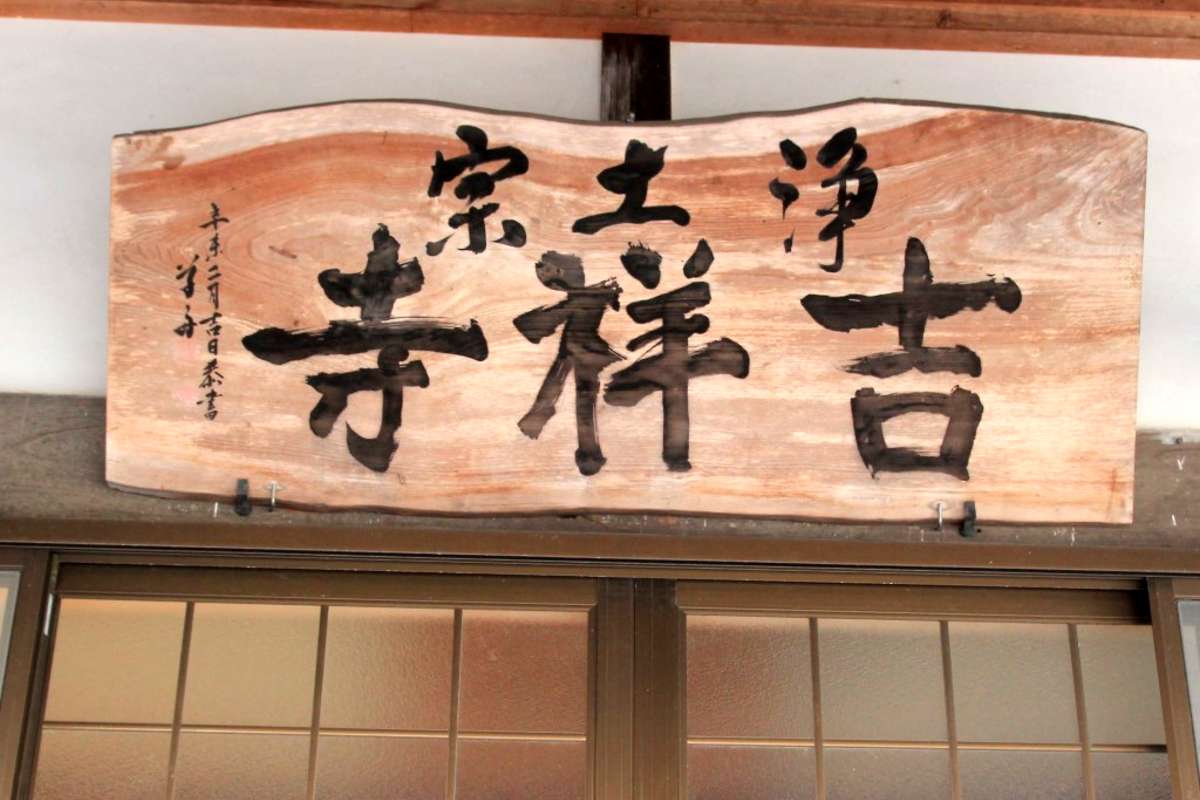 浄土宗
吉祥寺
辛未二月吉日恭書